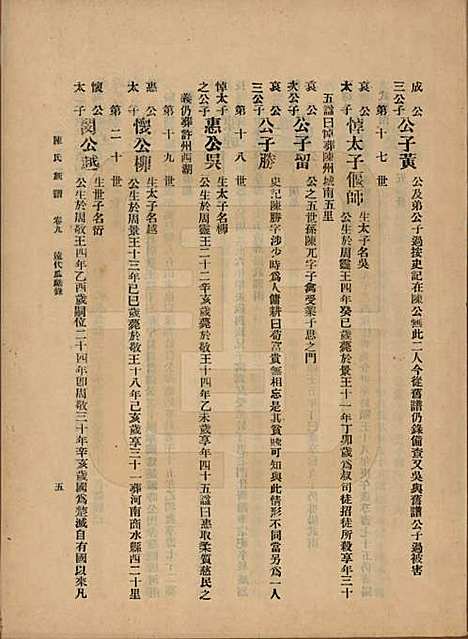 成公三公子
公子黃
公及弟公子過按史記在陳公無此二人今從舊譜仍錄備查又吳與舊譜公子過被害
第十七世
哀公太子
悼太子偃師
生太子名吳
公生於周靈王四年癸巳歲薨於景王十一年丁卯歲為叔司徒招徒所殺享年三十
五諡曰悼葬陳州城南五里
哀公次公子
公子留
公之五世孫陳亢字子禽受業子思之門
哀公三公子
公子勝
史記陳勝字涉少時為人傭耕曰苟富貴無相忘是其貧賤可知與此情形不同當另為一人
第十八世
悼太子之公子
惠公吳
生太子名柳
公生於周靈王二十二年辛亥歲薨於敬王十四年乙未歲享年四十五諡曰惠取柔質慈民之
義仍葬許州西湖
第十九世
惠公太子
懷公柳
生太子名越
公生於周景王十三年己巳歲薨於敬王十八年己亥歲享年三十一葬河南商水縣西二十里
第二十世
懷公太子
閔公越
生世子名衍
公生於周敬王四年乙酉歲嗣位二十四年卽周敬王三十年辛亥歲國為楚滅自有國以來凡
陳氏族譜
卷九
流代瓜瓞錄
五